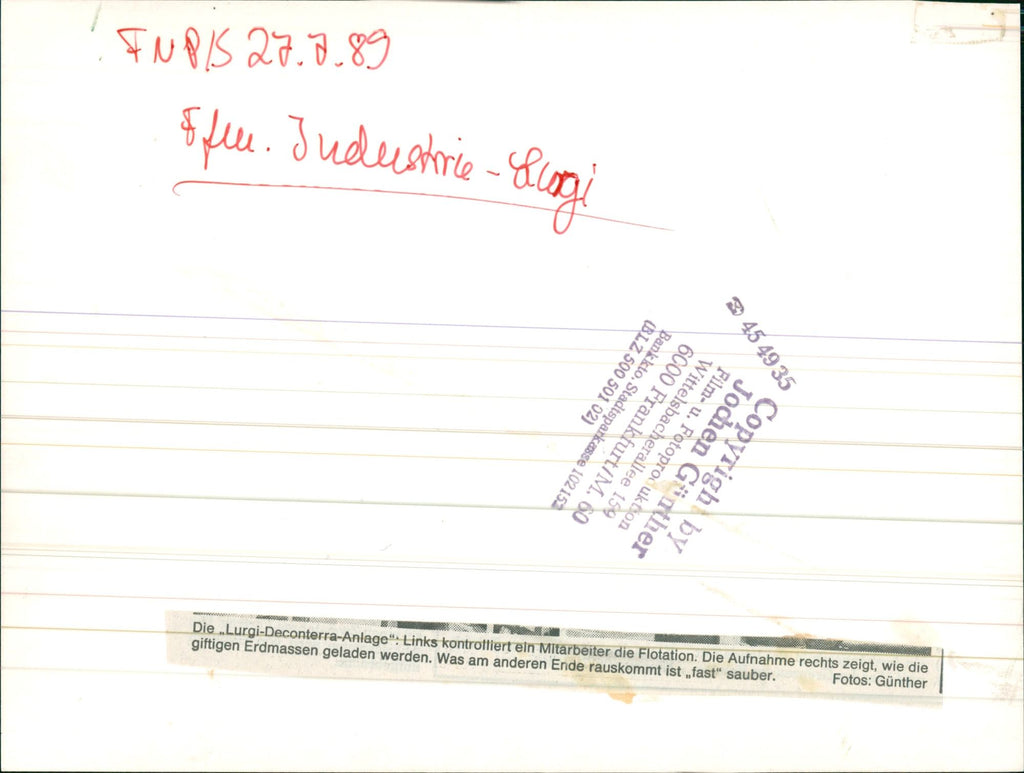 FNP/S 27.7.89
Ffm. Industrie - Lurgi
☎ 45 49 35
Copyright by
Jochen Günther
Film- u. Fotoproduktion
Wittelsbacherallee 159
6000 Frankfurt/M. 60
Bankkto. Stadtsparkasse 102152
(BLZ 500 501 02)
Die „Lurgi-Deconterra-Anlage“: Links kontrolliert ein Mitarbeiter die Flotation. Die Aufnahme rechts zeigt, wie die
giftigen Erdmassen geladen werden. Was am anderen Ende rauskommt ist „fast“ sauber. Fotos: Günther